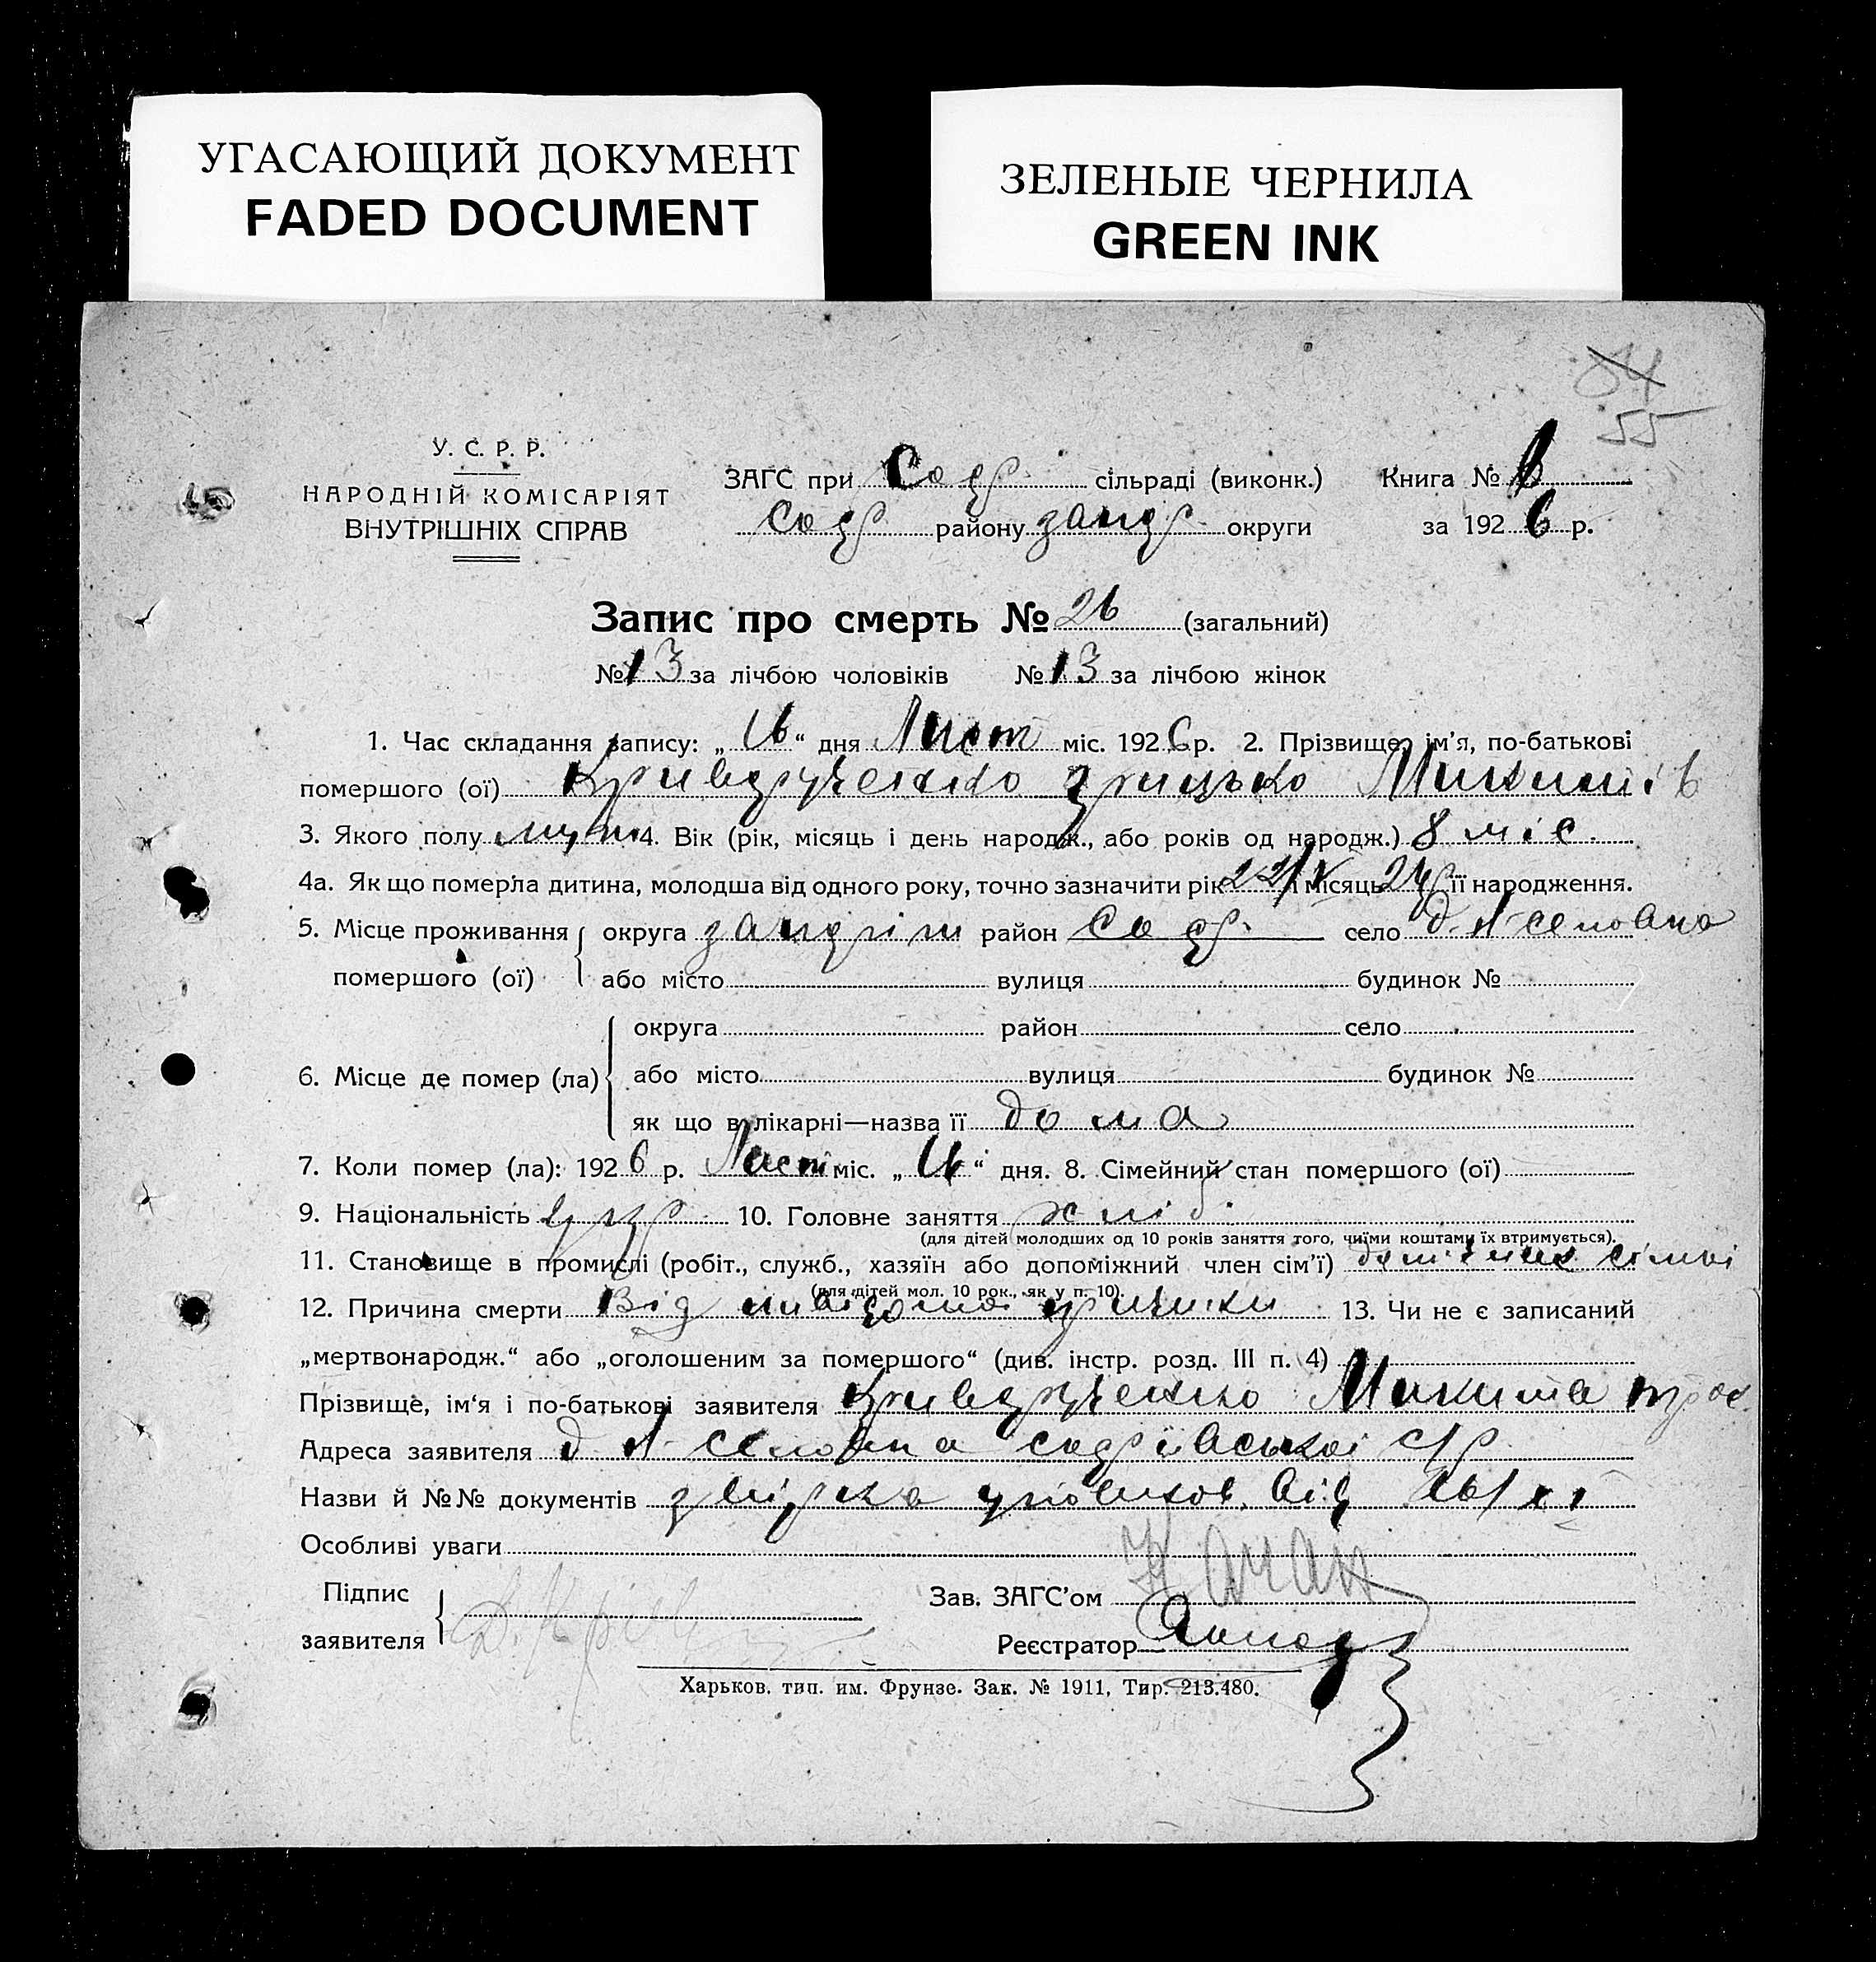 УГАСАЮЩИЙ ДОКУМЕНТ
FADED DOCUMENT
ЗЕЛЕНЫЕ ЧЕРНИЛА
GREEN INK
84
55
У. С. Р. Р.
НАРОДНІЙ КОМІСАРІЯТ
ВНУТРІШНІХ СПРАВ
ЗАГС при Содр. сільраді (виконк.) Книга №
Содр району запор. округи за 1926 р.
Запис про смерть № 26 (загальний)
№ 13 за лічбою чоловіків № 13 за лічбою жінок
1. Час складання запису: „16“ дня Лист міс. 1926 р. 2. Прізвище, ім'я, по-батькові
помершого (ої) Криворученко Грицько Микитів
3. Якого полу муж 4. Вік (рік, місяць і день народж., або років од народж.) 8 міс.
4а. Як що померла дитина, молодша від одного року, точно зазначити рік і місяць її народження.
5. Місце проживання округа район Содр. село
помершого (ої) або місто вулиця будинок №
округа район село
6. Місце де помер (ла) або місто вулиця будинок №
як що в лікарні—назва її дома
7. Коли помер (ла): 1926 р. Лист міс. „16“ дня. 8. Сімейний стан помершого (ої)
9. Національність укр 10. Головне заняття хліб.
(для дітей молодших од 10 років заняття того, чиїми коштами їх втримується).
11. Становище в промислі (робіт., служб., хазяїн або допоміжний член сім'ї) сімьі
(для дітей мол. 10 рок., як у п. 10).
12. Причина смерти Від 13. Чи не є записаний
„мертвонародж.“ або „оголошеним за помершого“ (див. інстр. розд. III п. 4)
Прізвище, ім'я і по-батькові заявителя Криворученко Микита
Адреса заявителя с/р
Назви й №№ документів від 16/XI
Особливі уваги
Підпис
заявителя
Зав. ЗАГС'ом
Реєстратор
Харьков. тип. им. Фрунзе. Зак. № 1911, Тир. 213.480.